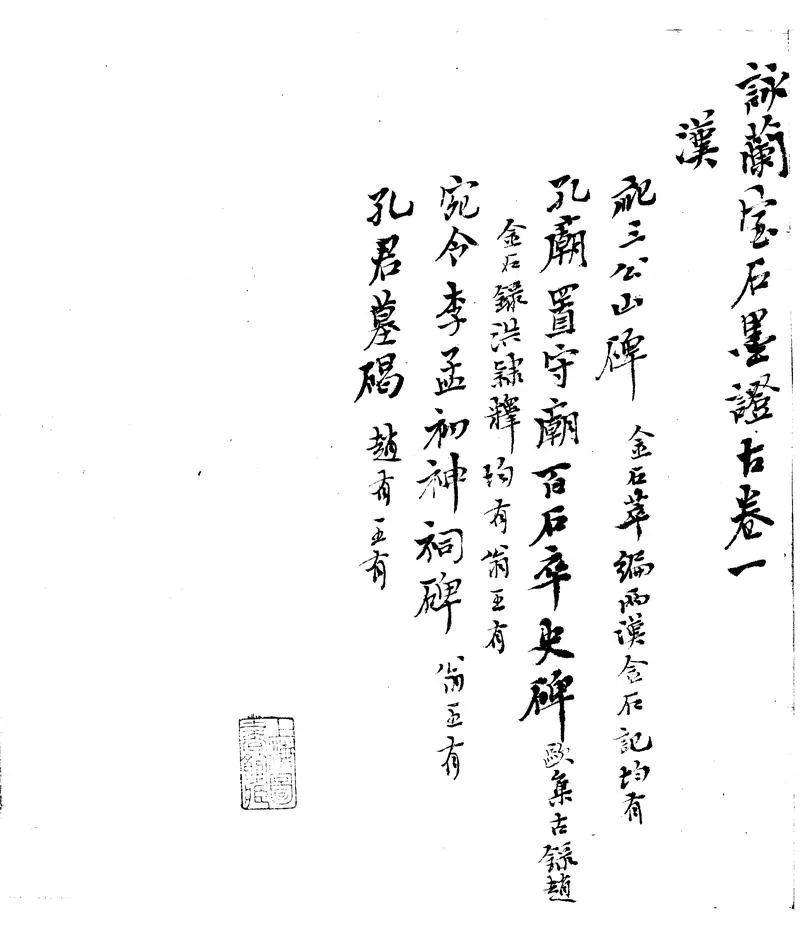 詠蘭室石墨證古卷一
漢
祀三公山碑 金石萃編兩漢金石記均有
孔廟置守廟百石卒史碑 歐集古録趙
金石録洪隷釋均有翁王有
宛令李孟初神祠碑 翁王有
孔君墓碣 趙有王有
上海圖
書館藏